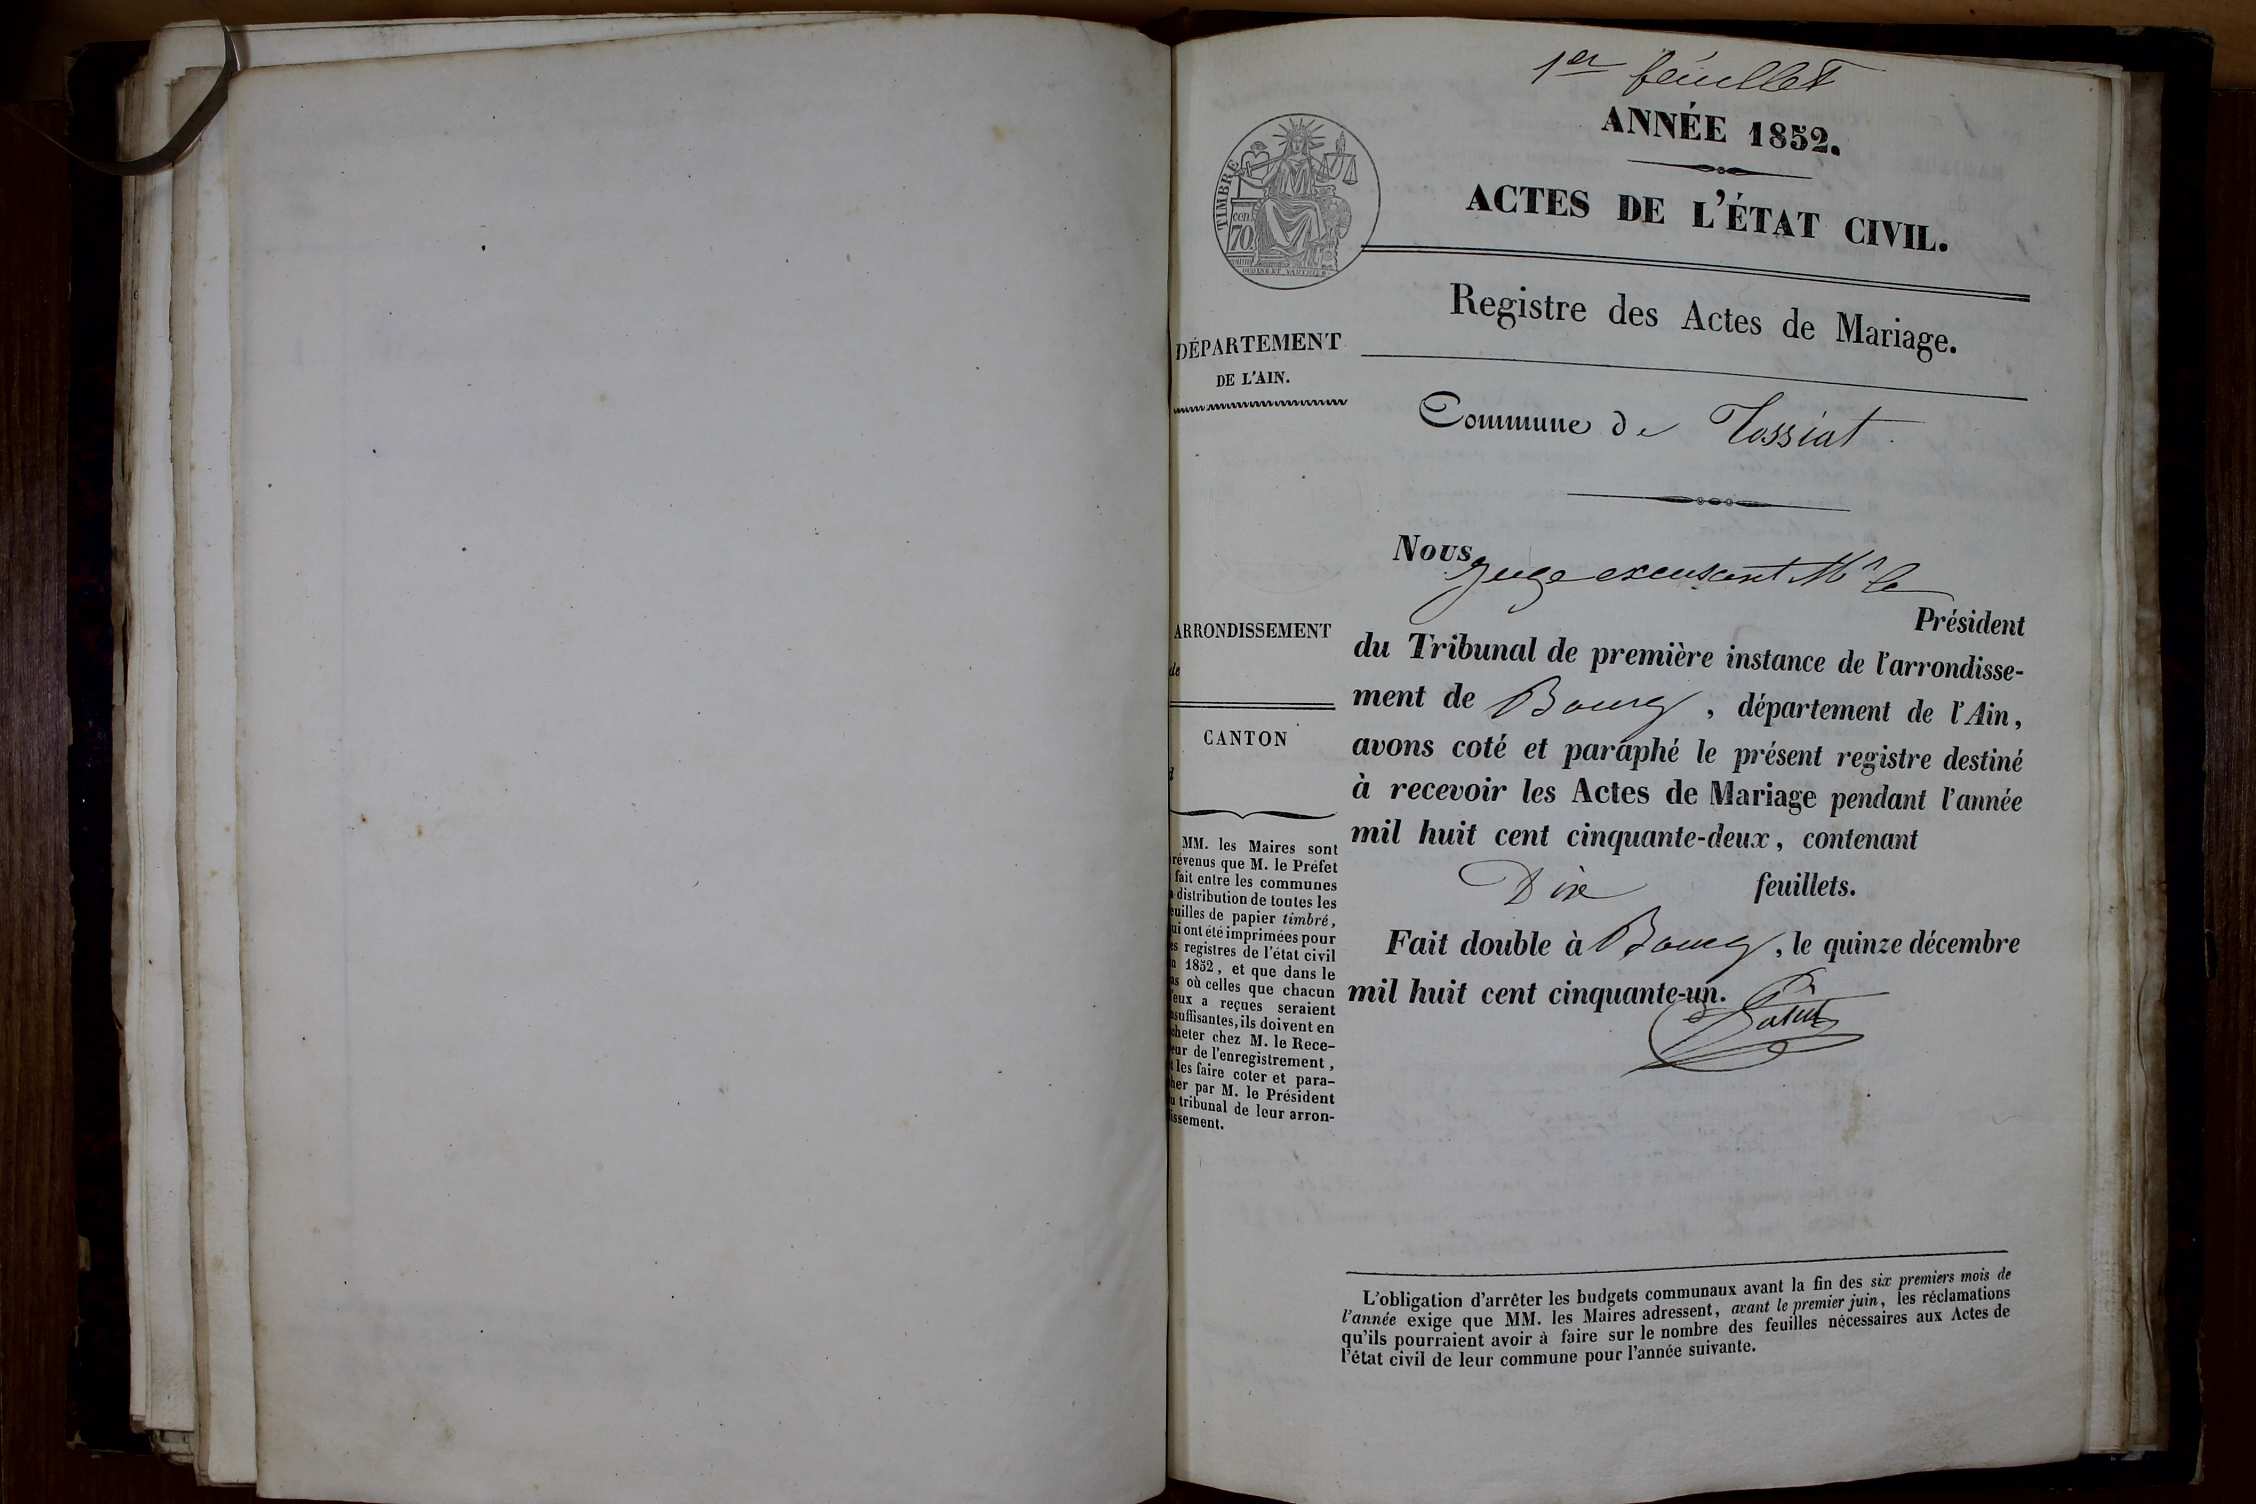 1er feuillet
ANNÉE 1852.
ACTES DE L'ÉTAT CIVIL.
TIMBRE
cen.
70
Registre des Actes de Mariage.
DÉPARTEMENT
DE L'AIN.
Commune de Tossiat.
Nous
Juge excusant Mr le
Président
du Tribunal de première instance de l'arrondisse-
ment de Bourg, département de l'Ain,
avons coté et paraphé le présent registre destiné
à recevoir les Actes de Mariage pendant l'année
mil huit cent cinquante-deux, contenant
Dix feuillets.
Fait double à Bourg, le quinze décembre
mil huit cent cinquante-un.
ARRONDISSEMENT
de
CANTON
MM. les Maires sont
révenus que M. le Préfet
fait entre les communes
distribution de toutes les
euilles de papier timbré,
ui ont été imprimées pour
es registres de l'état civil
n 1852, et que dans le
as où celles que chacun
'eux a reçues seraient
nsuffisantes, ils doivent en
cheter chez M. le Rece-
eur de l'enregistrement,
t les faire coter et para-
her par M. le Président
u tribunal de leur arron-
issement.
L'obligation d'arrêter les budgets communaux avant la fin des six premiers mois de
l'année exige que MM. les Maires adressent, avant le premier juin, les réclamations
qu'ils pourraient avoir à faire sur le nombre des feuilles nécessaires aux Actes de
l'état civil de leur commune pour l'année suivante.